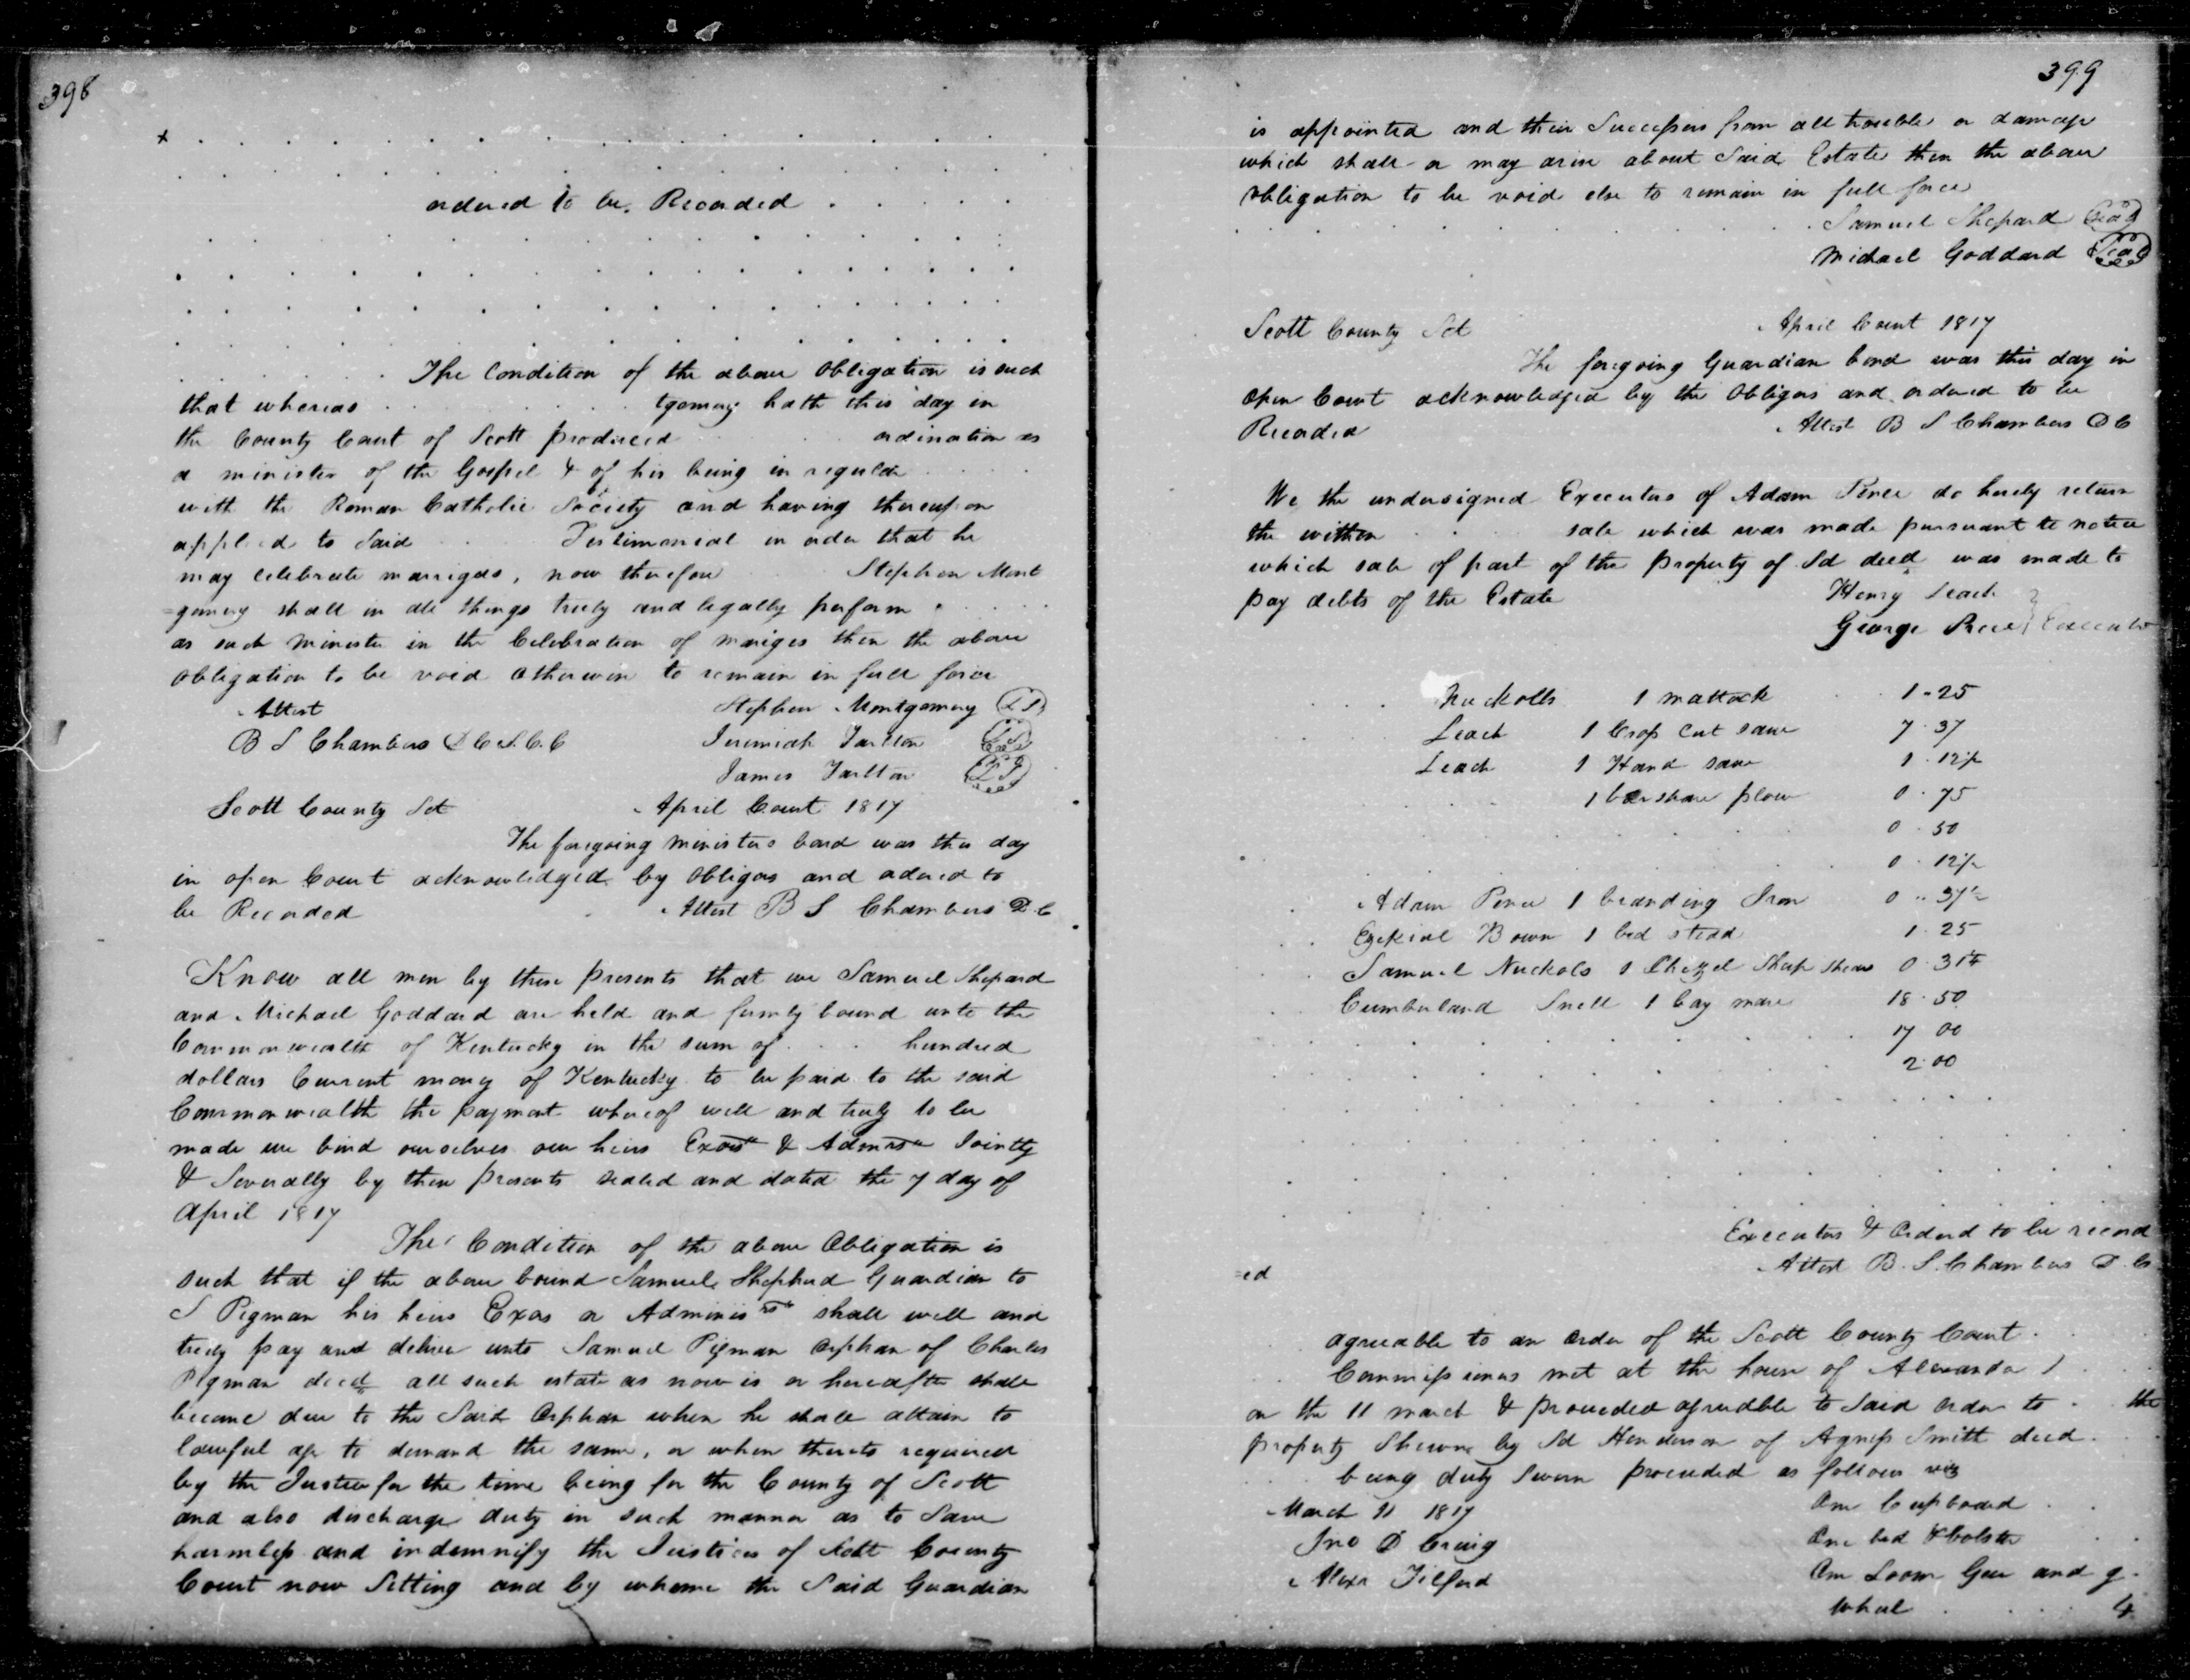 398
x . . . . . . . . . . . .
ordered to be Recorded . . . . .
The Condition of the above Obligation is such
that whereas . . . . . . tgomery hath this day in
the County Court of Scott produced . . . ordination as
a minister of the Gospel & of his being in regular . . . .
with the Roman Catholic Society and having thereupon
applied to Said . . . Testimonial in order that he
may celebrate marriges, now therefore . . Stephen Mont
=gomery shall in all things truly and legally perform . . . .
as such Minister in the Celebration of mariges then the above
obligation to be void otherwise to remain in full force
Attest Stephen Montgomery (LS)
B S Chambers D C S. C. C Jeremiah Tarlton (LS)
James Tarlton (LS)
Scott County Sct April Court 1817
The foregoing Ministers bond was this day
in open Court acknowledged by Obligors and ordered to
be Recorded Attest B S Chambers D. C
Know all men by these presents that we Samuel Shepard
and Michael Goddard are held and firmly bound unto the
Commonwealth of Kentucky in the sum of . . . hundred
dollars Current mony of Kentucky to be paid to the said
Commonwealth the payment whereof well and truly to be
made we bind ourselves our heirs Exors & Admrs Jointly
& Severally by these presents sealed and dated the 7 day of
April 1817
The Condition of the above Obligation is
such that if the above bound Samuel Shepherd Guardian to
S Pigman his heirs Exors or Administrs shall well and
truly pay and deliver unto Samuel Pigman Orphan of Charles
Pigman decd all such estate as now is or hereafter shall
become due to the Said Orphan when he shall attain to
lawful age to demand the same, or when thereto required
by the Justices for the time being for the County of Scott
and also discharge duty in such manner as to Save
harmless and indemnify the Justices of Scott County
Court now Sitting and by whome the Said Guardian
399
is appointed and their Successors from all trouble or damage
which shall or may arise about Said Estate then the above
obligation to be void else to remain in full force
Samuel Shepard (Seal)
Michael Goddard (Seal)
Scott County Sct April Court 1817
The foregoing Guardian bond was this day in
Open Court acknowledged by the Obligors and ordered to be
Recorded Attest B S Chambers D C
We the undersigned Executors of Adam do hereby return
the within . . . sale which was made pursuant to notice
which sale of part of the property of Sd decd was made to
pay debts of the Estate Henry Leach }
George } Executor
. . . Nuckolls 1 mattock . 1 - 25
. . . Leach 1 Crop Cut saw 7 . 37
Leach 1 Hand saw 1 . 12½
. . . 1 barshare plow 0 . 75
. . . 0 . 50
. . . 0 . 12½
. Adam 1 branding Iron 0 .. 37½
. . Ezekiel Bown 1 bed stead 1 . 25
Samuel Nuckols 1 Chizzel Sheep Shears 0 . 31¼
. . Cumberland Snell 1 bay mare 18 . 50
. . . 17 00
. . . 2 . 00
Executors & Ordered to be record
=ed Attest B. S. Chambers D. C.
. . agreeable to an order of the Scott County Court . .
. . Commissioners met at the house of Alexander . .
on the 11 march & proceeded agreable to Said order to . the
property Shewn by Sd Henderson of Agness Smith decd . .
. . being duly Sworn proceeded as follows viz
March 11 1817 One Cupboard . .
Jno D Craig One bed & bolster . .
Alexr Tilford One Loom Gear and g .
Wheel . . . . 4